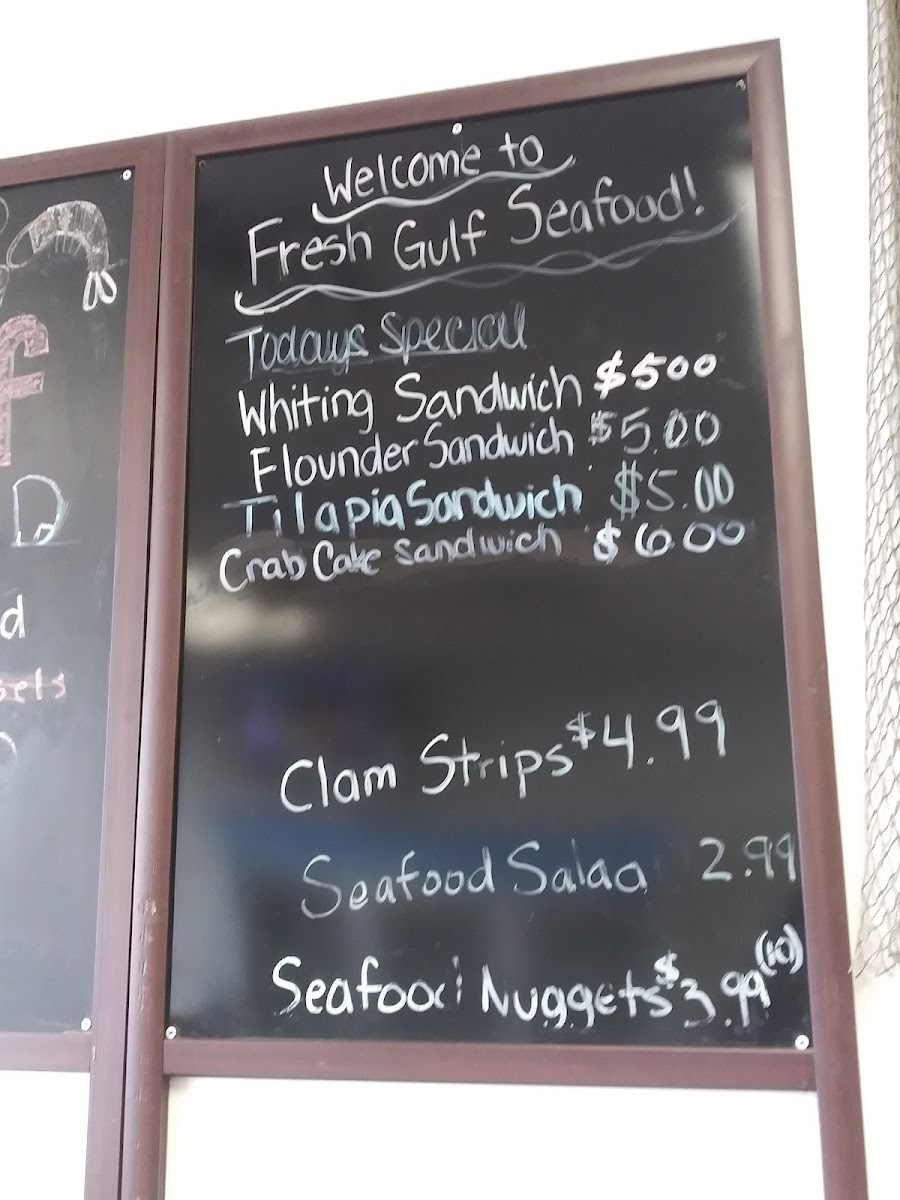 Welcome to
Fresh Gulf Seafood!
Todays Special
Whiting Sandwich $500
Flounder Sandwich $5.00
Tilapia Sandwich $5.00
Crab Cake Sandwich $6.00
Clam Strips $4.99
Seafood Salad 2.99
Seafood Nuggets $3.99 (10)
f
D
d
sets